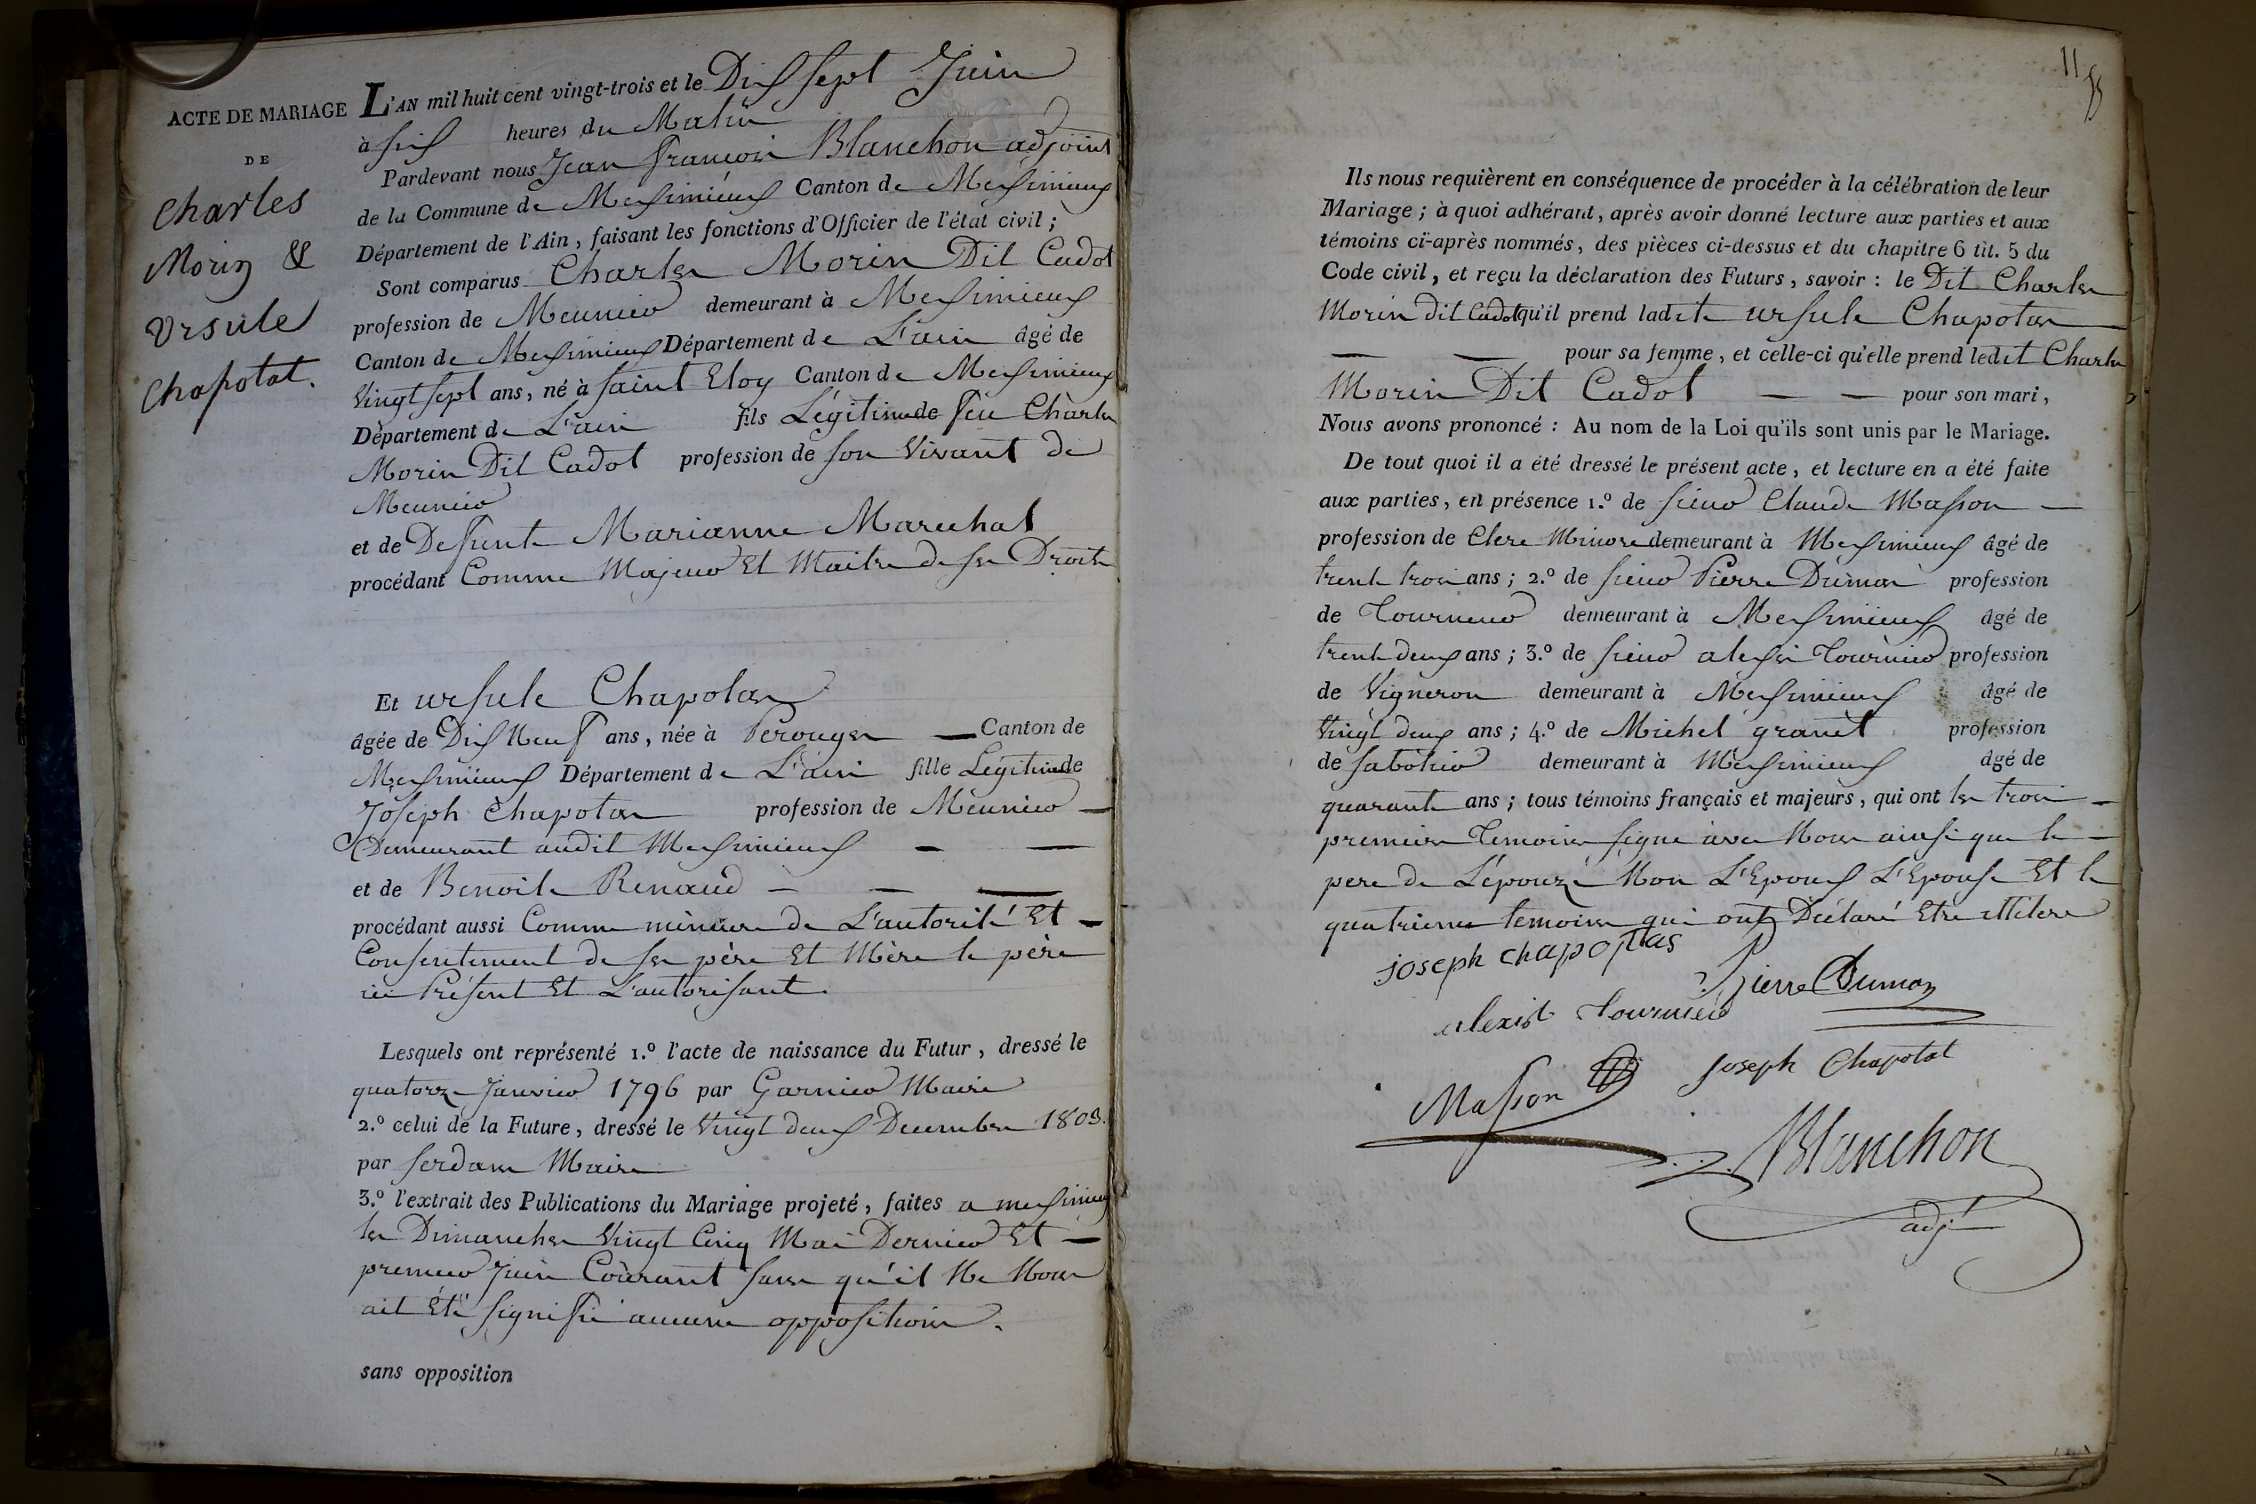 ACTE DE MARIAGE
DE
Charles
Morin &
Ursule
Chapotat.
L'AN mil huit cent vingt-trois et le Dix Sept Juin
à six heures du Matin
Pardevant nous Jean François Blanchon adjoint
de la Commune de Meximieux Canton de Meximieux
Département de l'Ain, faisant les fonctions d'Officier de l'état civil;
Sont comparus Charles Morin Dit Cadot
profession de Meunier demeurant à Meximieux
Canton de Meximieux Département de L'ain âgé de
Vingt sept ans, né à Saint Eloy Canton de Meximieux
Département de L'ain fils Légitime de feu Charles
Morin Dit Cadot profession de son Vivant de
Meunier
et de Defunte Marianne Marechal
procédant Comme Majeur Et Maitre de ses Droits
Et ursule Chapotas
âgée de Dix Neuf ans, née à Perouges Canton de
Meximieux Département de L'ain fille Légitime de
Joseph Chapotas profession de Meunier
Demeurant audit Meximieux
et de Benoite Renaud
procédant aussi Comme mineure de L'autorité Et
Consentement de ses père Et Mère le père
ici Présent Et L'autorisant.
Lesquels ont représenté 1.º l'acte de naissance du Futur, dressé le
quatorze Janvier 1796 par Garnier Maire
2.º celui de la Future, dressé le Vingt deux Decembre 1803.
par Maire
3.º l'extrait des Publications du Mariage projeté, faites a meximieux
les Dimanches Vingt Cinq Mai Dernier Et
premier Juin Courant sans qu'il Ne Nous
ait Eté signifié aucune opposition.
sans opposition
11
Ils nous requièrent en conséquence de procéder à la célébration de leur
Mariage; à quoi adhérant, après avoir donné lecture aux parties et aux
témoins ci-après nommés, des pièces ci-dessus et du chapitre 6 tit. 5 du
Code civil, et reçu la déclaration des Futurs, savoir: le Dit Charles
Morin dit Cadot qu'il prend ladite ursule Chapotas
pour sa femme, et celle-ci qu'elle prend ledit Charles
Morin Dit Cadot pour son mari,
Nous avons prononcé: Au nom de la Loi qu'ils sont unis par le Mariage.
De tout quoi il a été dressé le présent acte, et lecture en a été faite
aux parties, en présence 1.º de sieur Claude Masson
profession de Clerc Minore demeurant à Meximieux âgé de
trente trois ans; 2.º de sieur Pierre Dumas profession
de Tourneur demeurant à Meximieux âgé de
trente deux ans; 3.º de sieur alexis Tournier profession
de Vigneron demeurant à Meximieux âgé de
Vingt deux ans; 4.º de Michel granet profession
de sabotier demeurant à Meximieux âgé de
quarante ans; tous témoins français et majeurs, qui ont les trois
premiers Temoins signé avec Nous ainsi que le
pere de L'épouze Non L'Epoux L'Epouse Et le
quatrieme temoins qui ont Déclaré Etre illiteré
joseph chapottas
Pierre Dumas
alexist Tournier
Masson
Joseph Chapotat
Blanchon
adj.